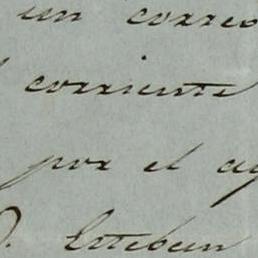 un correo
corriente
por el
D. Esteban